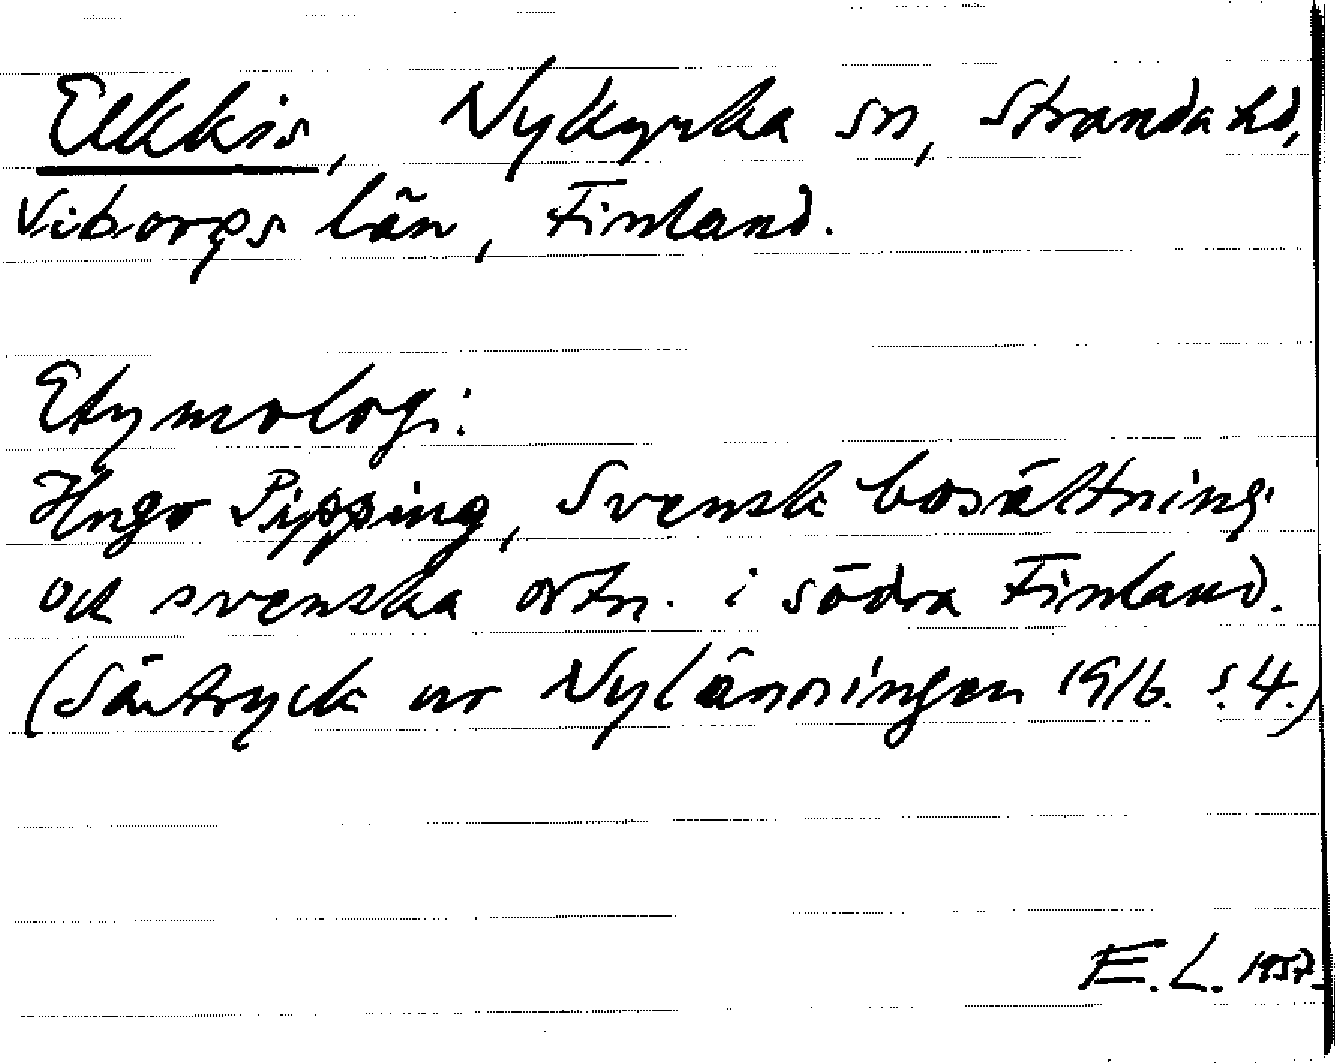 Elkkis, Nykyrka sn, Stranda hd,
Viborgs län, Finland.
Etymologi:
Hugo Pipping, Svensk bosättning
och svenska ortn. i södra Finland.
(Särtryck ur Nylänningen 1916. s. 4.)
E. L. 1957.